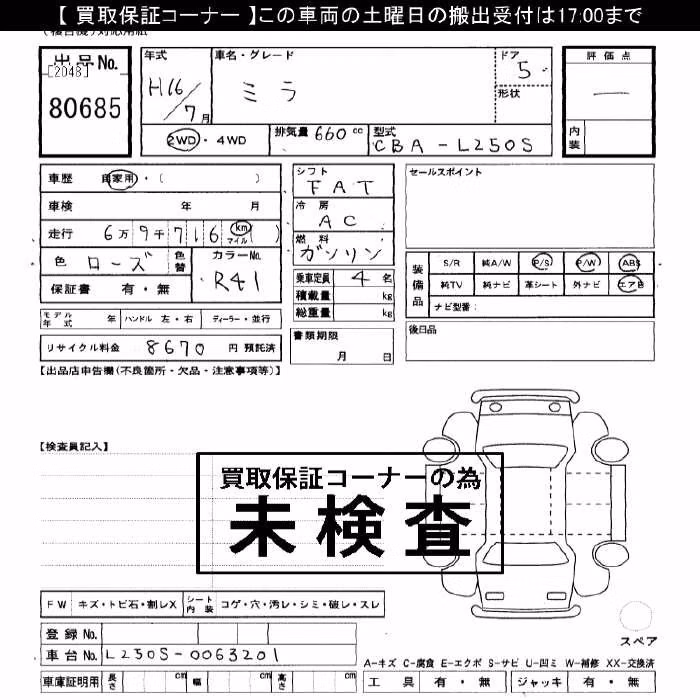 【 買取保証コーナー 】この車両の土曜日の搬出受付は17:00まで
出品No.
[2048]
80685
年式
H16/7月
車名・グレード
ミラ
ドア
5
形状
評価点
―
内装
2WD・4WD
排気量 660 cc
型式 CBA-L250S
車歴 自家用・( )
車検 年 月
走行 6万9千716 km マイル ( )
色 ローズ 色替
カラーNo. R41
保証書 有・無
シフト FAT
冷房 AC
燃料 ガソリン
乗車定員 4 名
積載量 kg
総重量 kg
セールスポイント
装備品
S/R 純A/W P/S P/W ABS
純TV 純ナビ 革シート 外ナビ エアB
ナビ型番:
モデル年式 年 ハンドル 左・右 ディーラー・並行
書類期限
月 日
後日品
リサイクル料金 8670 円 預託済
【出品店申告欄(不良箇所・欠品・注意事項等)】
【検査員記入】
買取保証コーナーの為
未検査
FW キズ・トビ石・割レX シート内装 コゲ・穴・汚レ・シミ・破レ・スレ
登録No.
車台No. L250S-0063201
車庫証明用 長さ cm 幅 cm 高さ cm
スペア
A-キズ C-腐食 E-エクボ S-サビ U-凹ミ W-補修 XX-交換済
工具 有・無 ジャッキ 有・無